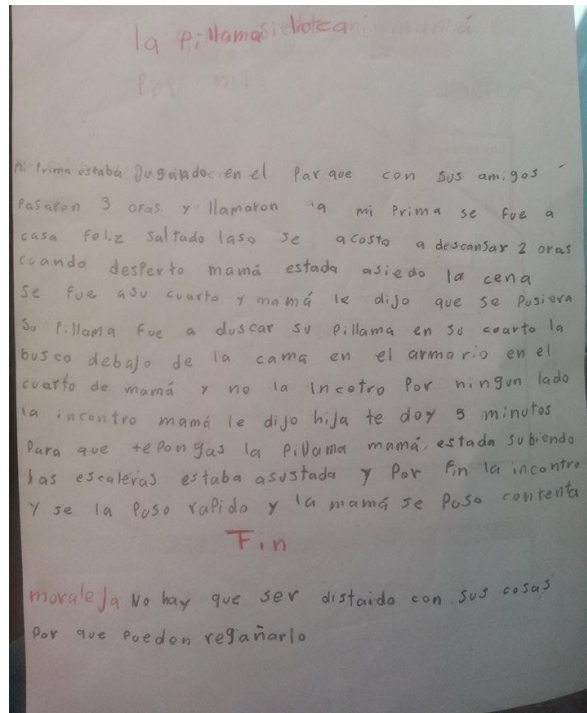 la pillama loca
mi Prima estaba Jugando en el Parque con sus amigos
Pasaron 3 oras y llamaron a mi Prima se fue a
casa Feliz saltado laso se acosto a descansar 2 oras
cuando desperto mamá estada asiedo la cena
se fue asu cuarto y mamá le dijo que se Pusiera
su Pillama fue a duscar su Pillama en su cuarto la
busco debajo de la cama en el armario en el
cuarto de mamá y no la incotro Por ningun lado
la incontro mamá le dijo hija te doy 5 minutos
Para que tepongas la Pillama mamá estada subiendo
las escaleras estaba asustada y Por Fin la incontro
y se la Puso rapido y la mamá se Puso contenta
Fin
moraleja No hay que ser distaido con sus cosas
Por que Pueden regañarlo